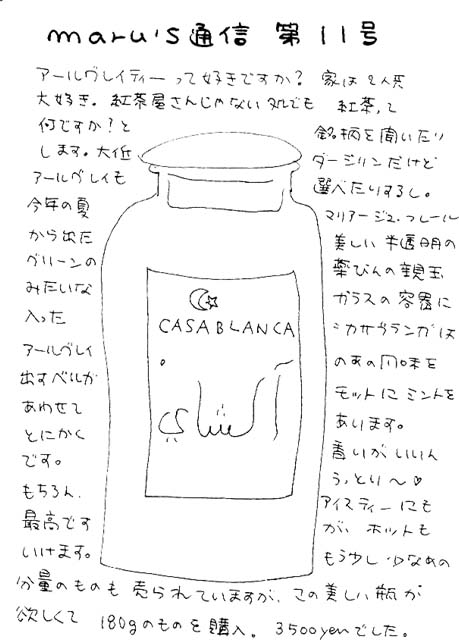 maru's通信 第11号
アールグレイティーって好きですか? 家は2人共
大好き。紅茶屋さんじゃない処でも 紅茶って
何ですか?と 銘柄を聞いたり
します。大低 ダージリンだけど
アールグレイも 選べたりするし。
今年の夏 マリアージュ・フレール
から出た 美しい半透明の
グリーンの 薬びんの親玉
みたいな ガラスの容器に
入った カサブランカは
アールグレイ のあの風味を
出すベルガ モットにミントを
あわせて あります。
とにかく 香りがいいん
です。 うっとり〜♡
もちろん、 アイスティーにも
最高です が、ホットも
いけます。 もう少し少なめの
分量のものも 売られていますが、この美しい瓶が
欲しくて 180gのものを購入。3500円でした。
CASABLANCA